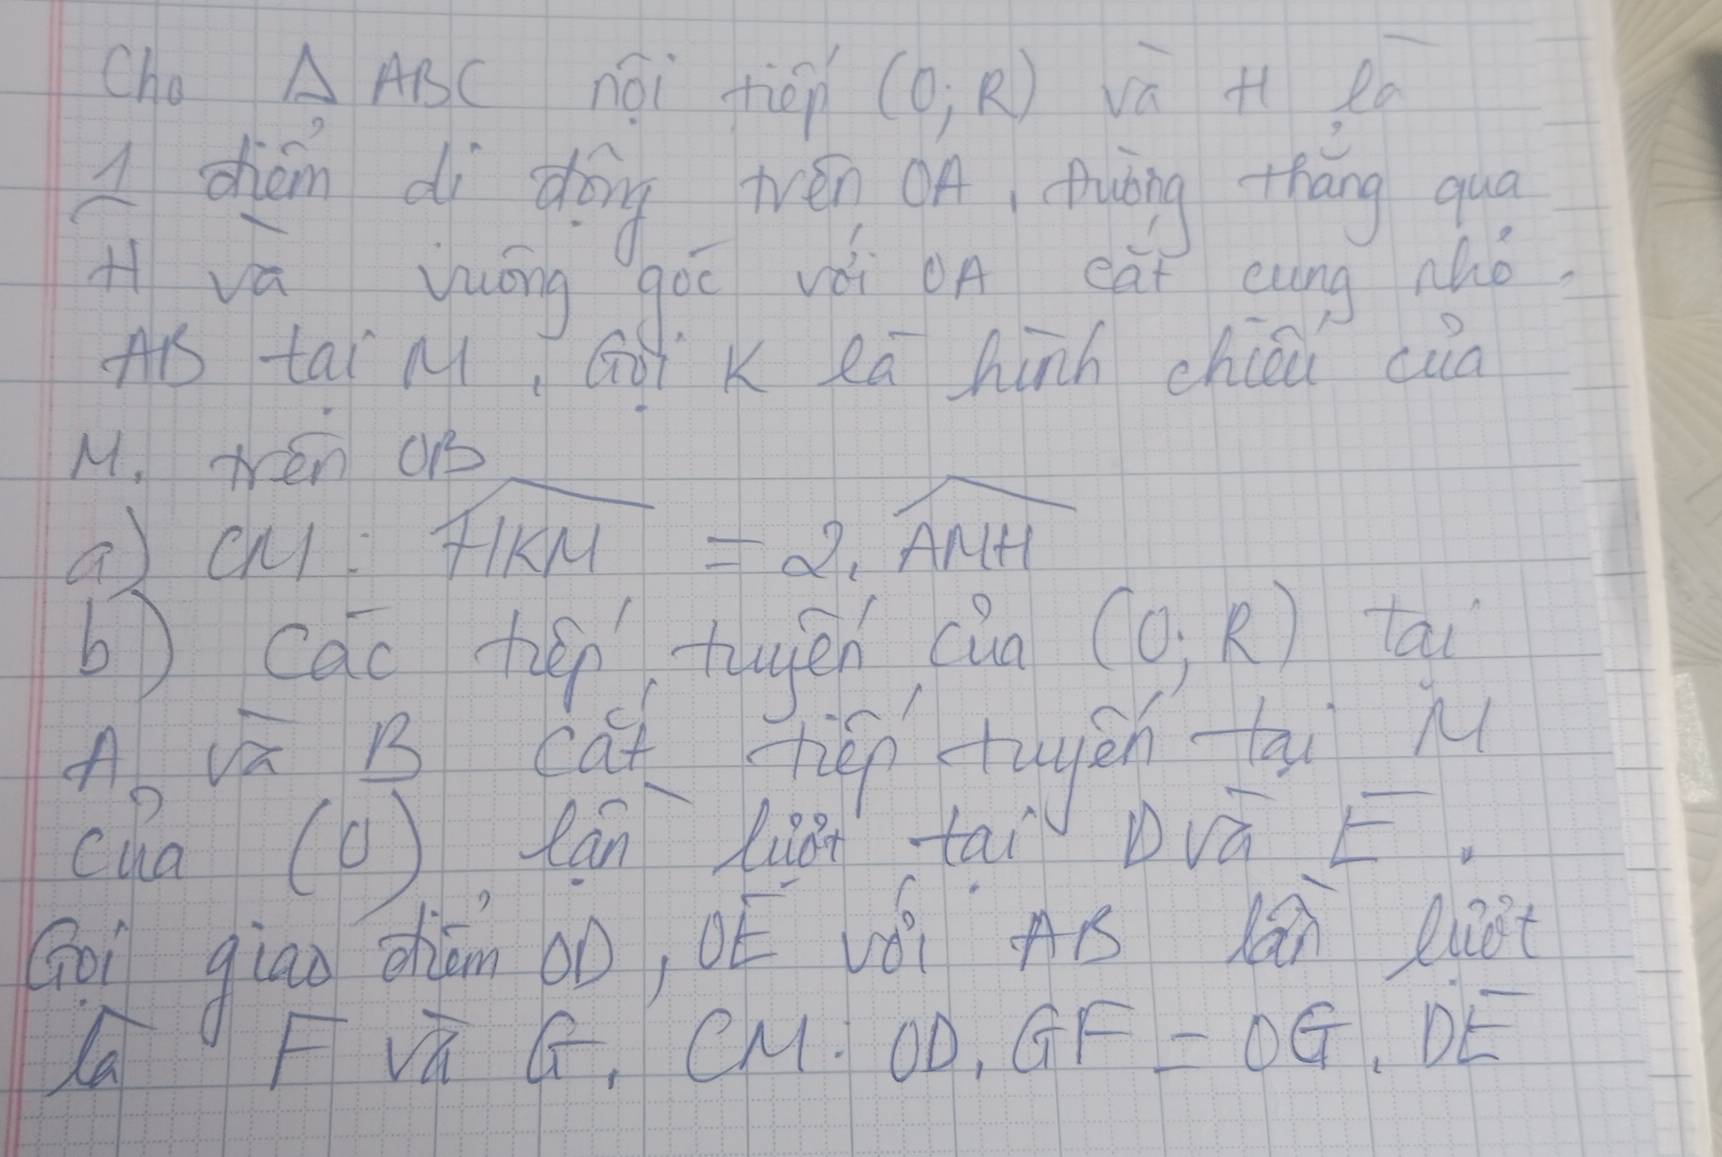 Cho Δ ABC nội tiếp (O; R) và H là
1 điểm di động trên OA, đường thẳng qua
H và vuông góc với OA cắt cung nhỏ
AB tại M, Gọi K là hình chiếu của
M. trên OB
a) CM: \widehat{HKM} = 2. \widehat{AMH}
b) Các tiếp tuyến của (O; R) tại
A và B cắt tiếp tuyến tại M
của (O) lần lượt tại D và E.
Gọi giao điểm OD, OE với AB lần lượt
là F và G. CM: OD. GF = OG. DE